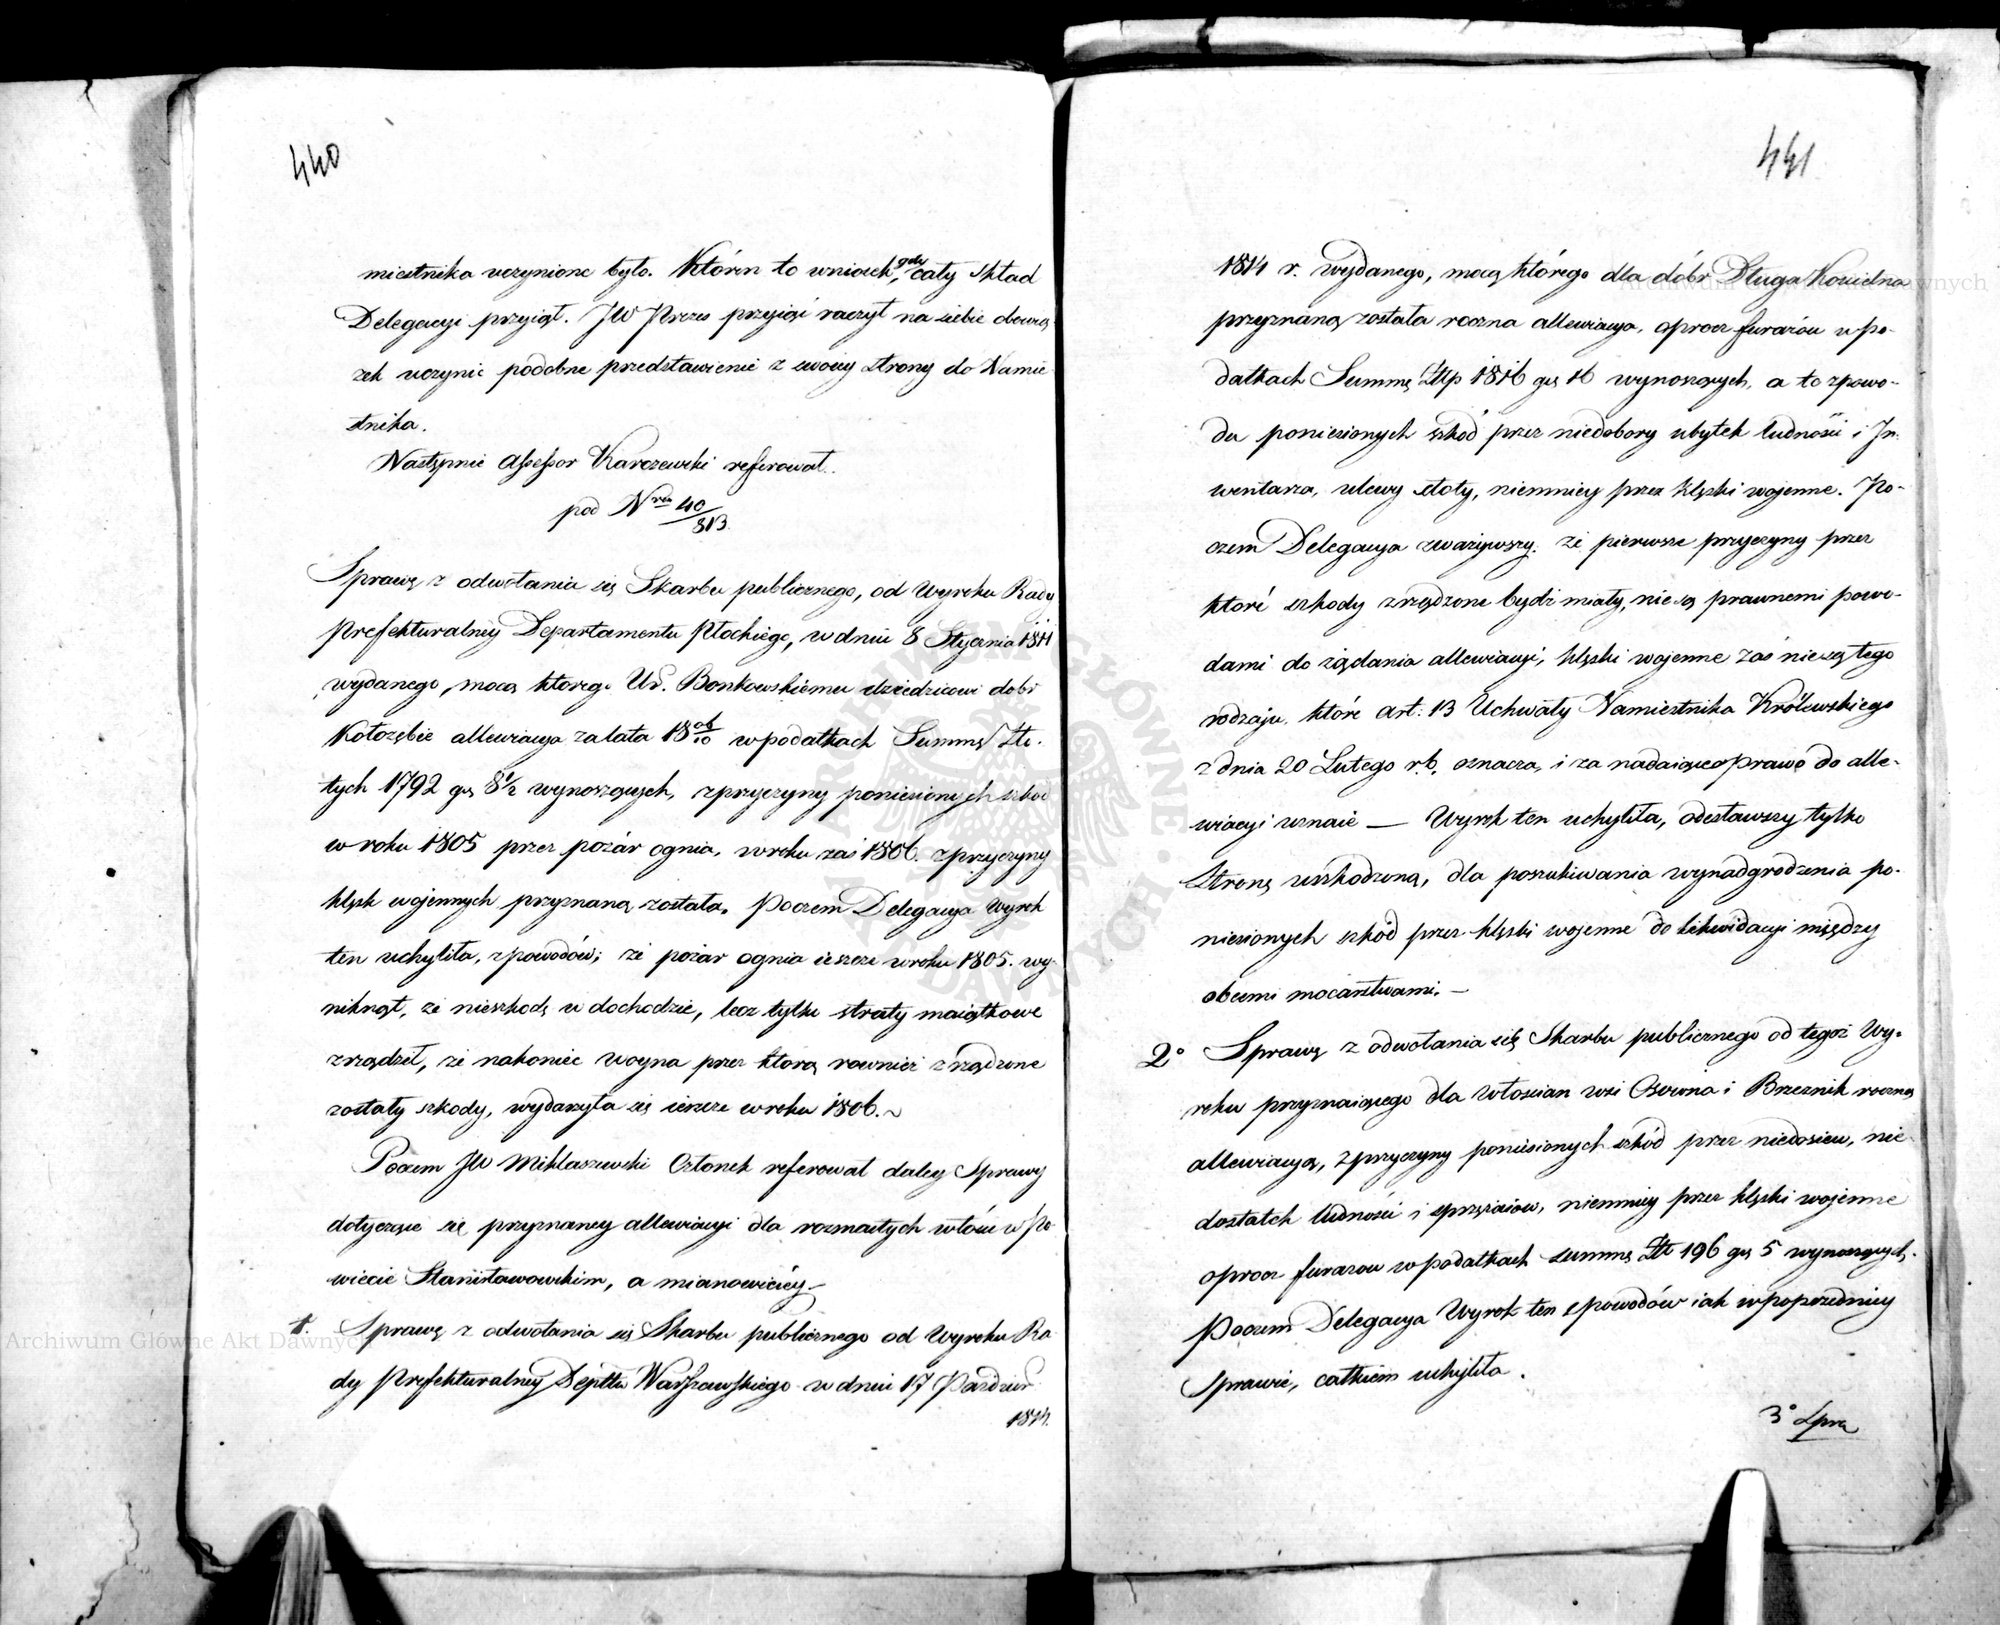 440
miestnika uczynione było. Któren to wniosek, gdy cały skład
Delegacyi przyiął. JW Prezes przyiąć raczył na siebie obowią-
zek uczynić podobne przedstawienie z swoiey strony do Namie-
stnika.
Następnie Assessor Karczewski referował.
pod Nrem 40/813.
Sprawę z odwołania się Skarbu publicznego, od Wyroku Rady
Prefekturalney Departamentu Płockiego, w dniu 8 Stycznia 1811
wydanego, mocą którego Ur. Bonkowskiemu dziedzicowi dobr
Kołozębie allewiacya za lata 18 06/10 w podatkach Summę Zło-
tych 1792 gs 8 1/2 wynoszących, z przyczyny poniesionych szkod
w roku 1805 przez pożar ognia, w roku zaś 1806. z przyczyny
klęsk wojennych przyznaną została. Poczem Delegacya Wyrok
ten uchyliła, z powodów; że pożar ognia ieszcze w roku 1805. wy-
niknął, że nieszkodę w dochodzie, lecz tylko straty maiątkowe
zrządził, że nakoniec woyna przez którą rownież zrządzone
zostały szkody, wydarzyła się ieszcze w roku 1806.
Poczem JW Miklaszewski Członek referował daley Sprawy
dotyczące się przyznaney allewiacyi dla rozmaitych włości w Po-
wiecie Stanisławowskim, a mianowiciey.
1. Sprawę z odwołania się Skarbu publicznego od Wyroku Ra-
dy Prefekturalney Depttu Warszawskiego w dniu 17 Paździer
1814.
441
1814 r. wydanego, mocą którego dla dóbr Długa Kościelna
przyznaną została roczna allewiacya, oprocz furażów w po-
datkach Summę Złłp 1816 gs 16 wynoszących, a to z powo-
du poniesionych szkód przez niedobory ubytek ludności i In-
wentarza, ulewy słoty, niemniey przez klęski wojenne. Po-
czem Delegacya zważywszy. że pierwsze przyczyny przez
które szkody zrządzone bydź miały, nie są prawnemi powo-
dami do żądania allewiacyi, klęski wojenne zaś nie są tego
rodzaju, które art: 13 Uchwały Namiestnika Królewskiego
z dnia 20 Lutego r. b. oznacza, i za nadaiące prawo do alle-
wiacyi uznaie — Wyrok ten uchyliła, odesławszy tylko
Stronę uszkodzoną, dla poszukiwania wynadgrodzenia po-
niesionych szkód przez klęski wojenne do likwidacyi między
obcemi mocarstwami. —
2° Sprawę z odwołania się Skarbu publicznego od tegoż Wy-
roku przyznaiącego dla włościan wsi Osowna i Brzeznik roczną
allewiacyą, z przyczyny poniesionych szkód przez niedosiew, nie-
dostatek ludności i sprzężaiow, niemniey przez klęski wojenne
oprocz furażow w podatkach summę Złt 196 gs 5 wynoszących.
Poczem Delegacya Wyrok ten z powodów iak w poprzedniey
Sprawie, całkiem uchyliła.
3° Spra
Archiwum Główne Akt Dawnych